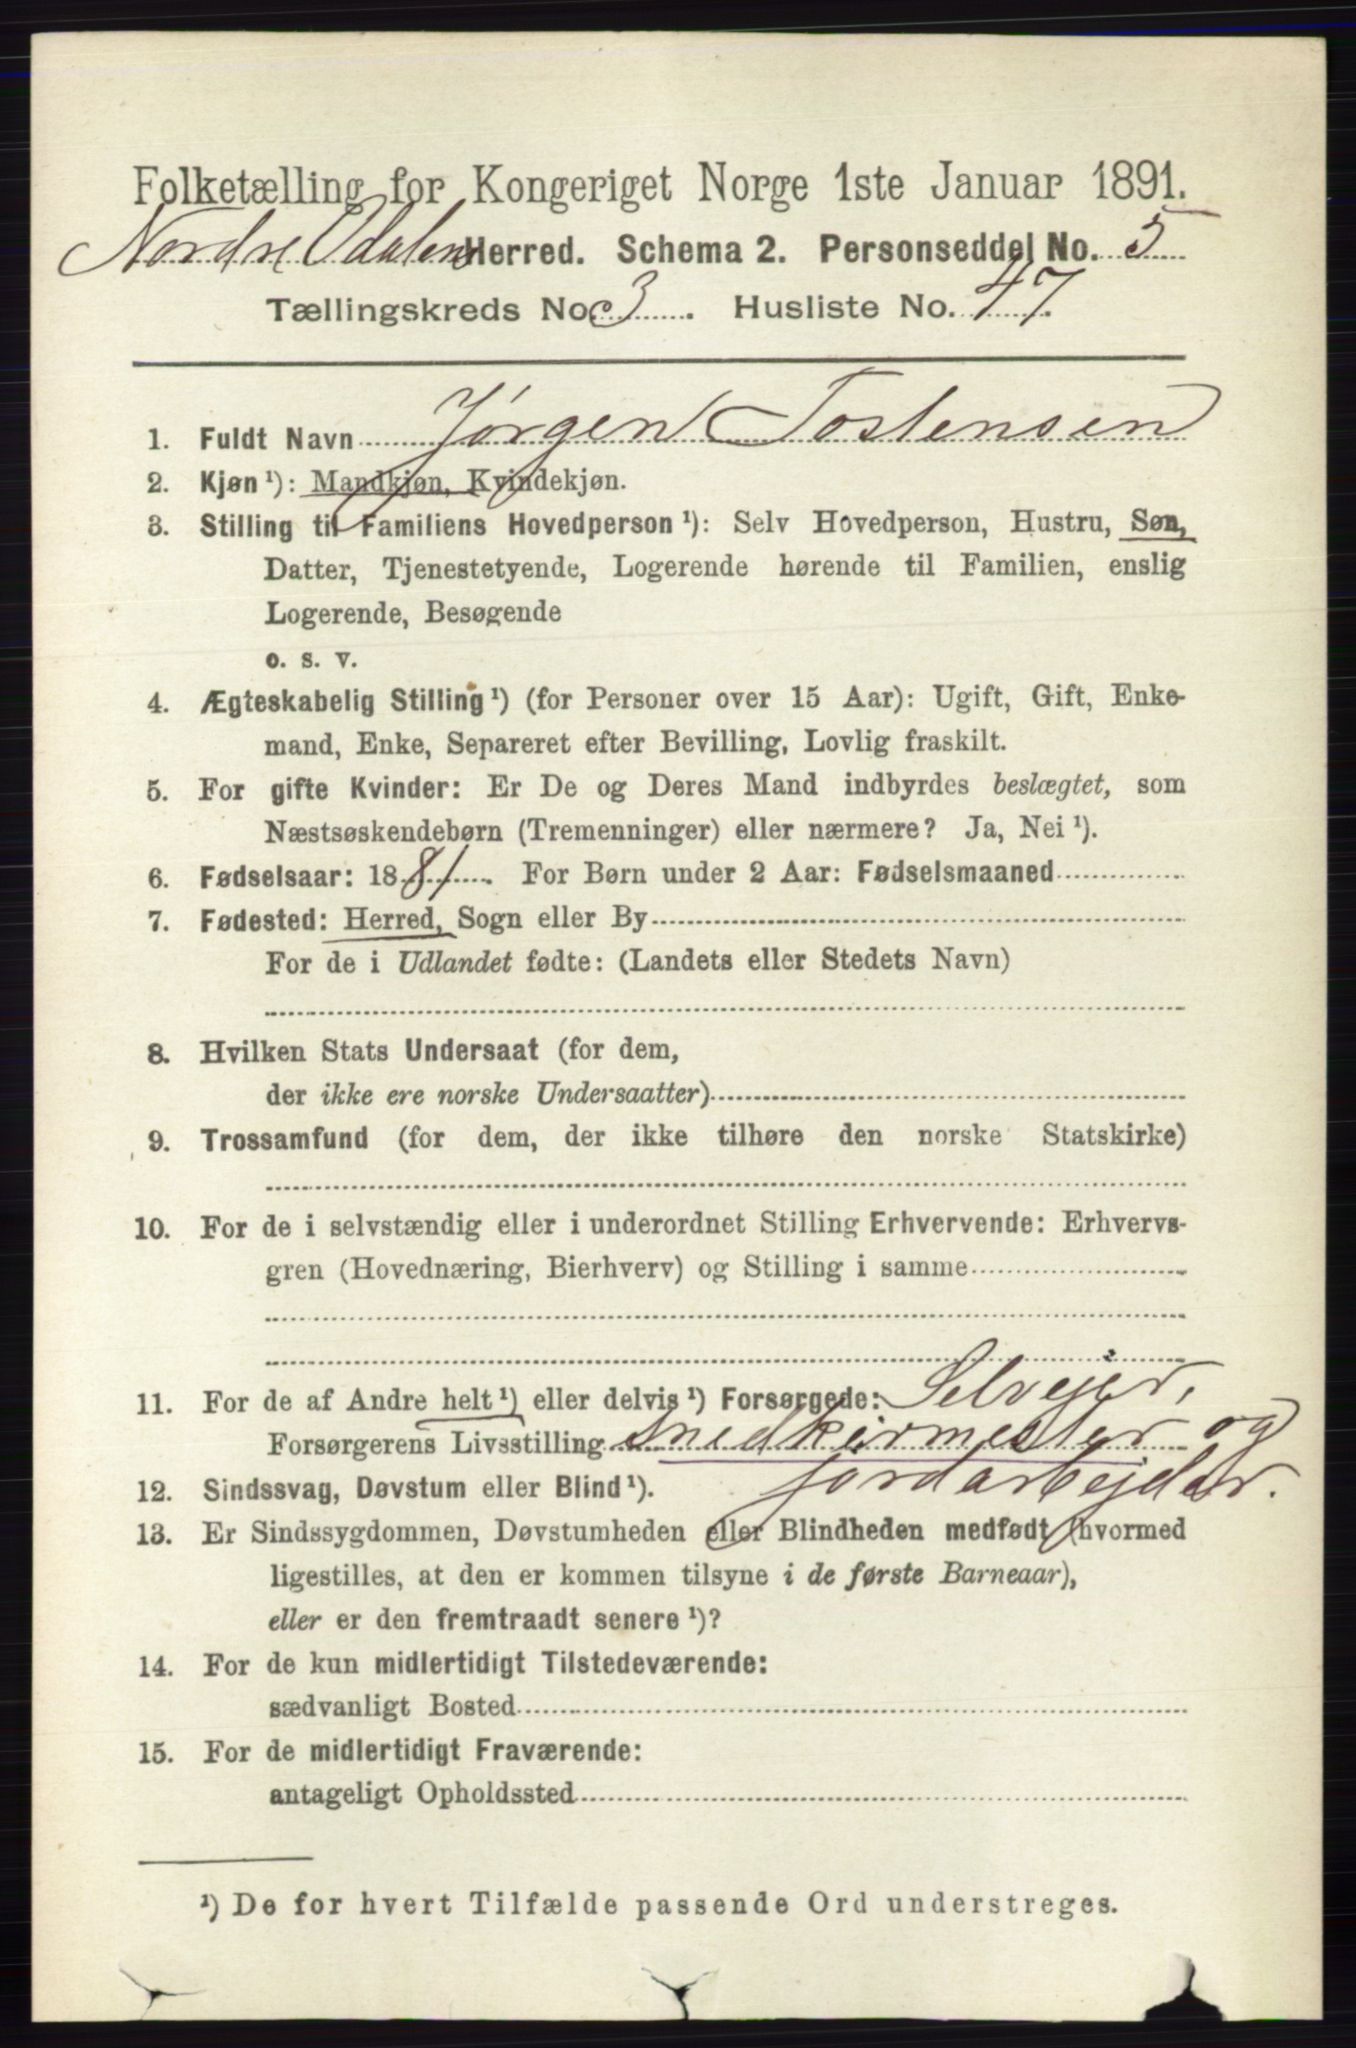 Folketælling for Kongeriget Norge 1ste Januar 1891.
Nordre Odalens Herred. Schema 2. Personseddel No. 5
Tællingskreds No. 3. Husliste No. 47.
1. Fuldt Navn Jørgen Tostensen
2. Kjøn ¹): Mandkjøn, Kvindekjøn.
3. Stilling til Familiens Hovedperson ¹): Selv Hovedperson, Hustru, Søn,
Datter, Tjenestetyende, Logerende hørende til Familien, enslig
Logerende, Besøgende
o. s. v.
4. Ægteskabelig Stilling ¹) (for Personer over 15 Aar): Ugift, Gift, Enke-
mand, Enke, Separeret efter Bevilling, Lovlig fraskilt.
5. For gifte Kvinder: Er De og Deres Mand indbyrdes beslægtet, som
Næstsøskendebørn (Tremenninger) eller nærmere? Ja, Nei ¹).
6. Fødselsaar: 1881. For Børn under 2 Aar: Fødselsmaaned
7. Fødested: Herred, Sogn eller By
For de i Udlandet fødte: (Landets eller Stedets Navn)
8. Hvilken Stats Undersaat (for dem,
der ikke ere norske Undersaatter)
9. Trossamfund (for dem, der ikke tilhøre den norske Statskirke)
10. For de i selvstændig eller i underordnet Stilling Erhvervende: Erhvervs-
gren (Hovednæring, Bierhverv) og Stilling i samme
11. For de af Andre helt ¹) eller delvis ¹) Forsørgede: Selveier,
Forsørgerens Livsstilling Snedkermester og
12. Sindssvag, Døvstum eller Blind ¹). jordarbejder.
13. Er Sindssygdommen, Døvstumheden eller Blindheden medfødt (hvormed
ligestilles, at den er kommen tilsyne i de første Barneaar),
eller er den fremtraadt senere ¹)?
14. For de kun midlertidigt Tilstedeværende:
sædvanligt Bosted
15. For de midlertidigt Fraværende:
antageligt Opholdssted
¹) De for hvert Tilfælde passende Ord understreges.